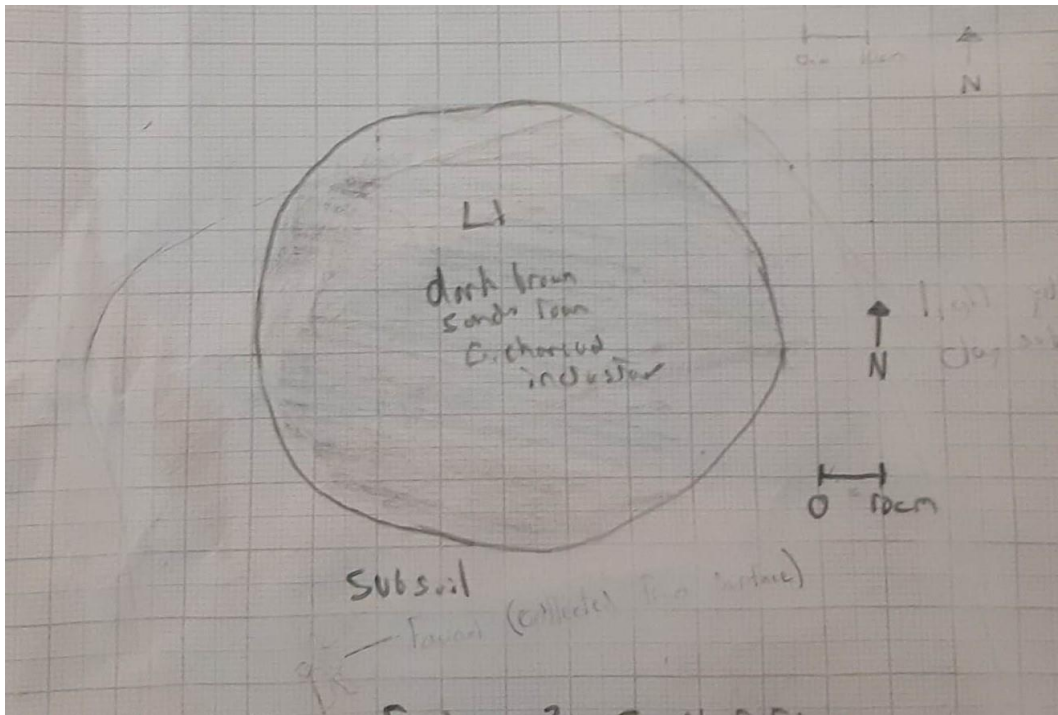 N
L1
dark brown
sandy loam
c. charcoal
inclusions
N
0 10cm
Subsoil
(collected from surface)